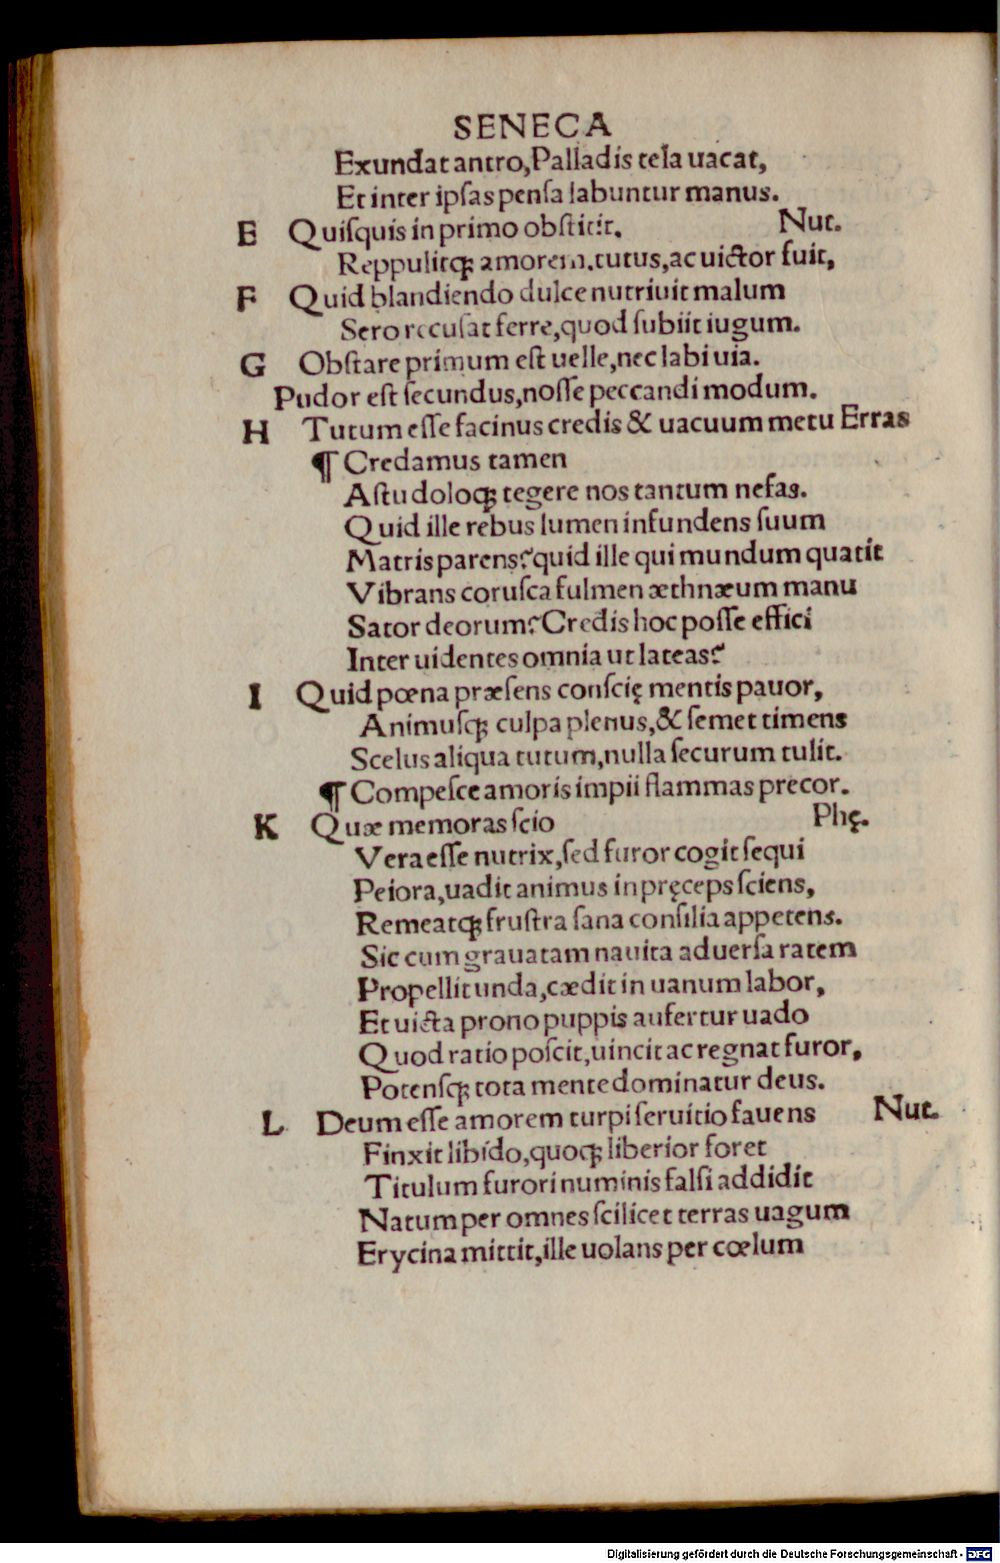 SENECA
Exundat antro,Palladis tela uacat,
Et inter ipsas pensa labuntur manus.
E Quiſquis in primo obſtitit. Nut.
Reppulitqꝫ amorem.tutus,ac uictor fuit,
F Quid blandiendo dulce nutriuit malum
Sero recuſat ferre,quod ſubiit iugum.
G Obſtare primum eſt uelle,nec labi uia.
Pudor eſt ſecundus,noſſe peccandi modum.
H Tutum eſſe facinus credis & uacuum metu Erras
¶ Credamus tamen
Aſtu doloqꝫ tegere nos tantum nefas.
Quid ille rebus lumen infundens ſuum
Matris parens?quid ille qui mundum quatit
Vibrans coruſca fulmen æthnæum manu
Sator deorum?Credis hoc poſſe effici
Inter uidentes omnia ut lateas?
I Quid pœna præſens conſcię mentis pauor,
Animuſqꝫ culpa plenus,& ſemet timens
Scelus aliqua tutum,nulla ſecurum tulit.
¶ Compeſce amoris impii flammas precor.
K Quæ memoras ſcio Phę.
Vera eſſe nutrix,ſed furor cogit ſequi
Peiora,uadit animus in pręceps ſciens,
Remeatqꝫ fruſtra ſana conſilia appetens.
Sic cum grauatam nauita aduerſa ratem
Propellit unda,cædit in uanum labor,
Et uicta prono puppis aufertur uado
Quod ratio poſcit,uincit ac regnat furor,
Potenſqꝫ tota mente dominatur deus.
L Deum eſſe amorem turpi ſeruitio fauens Nut.
Finxit libido,quoqꝫ liberior foret
Titulum furori numinis falſi addidit
Natum per omnes ſcilicet terras uagum
Erycina mittit,ille uolans per cœlum
Digitalisierung gefördert durch die Deutsche Forschungsgemeinschaft - DFG